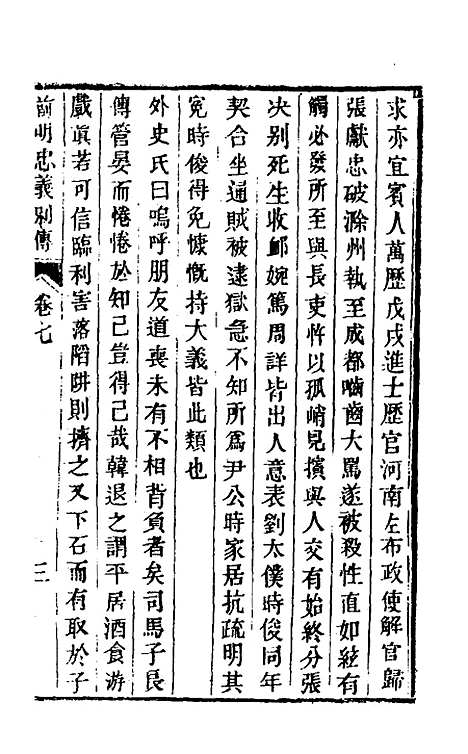 求亦宜賓人萬歷戊戌進士歷官河南左布政使解官歸
張獻忠破滁州執至成都嚙齒大罵遂被殺性直如絃有
觸必發所至與長吏忤以孤峭見擯與人交有始終分張
决别死生收卹婉篤周詳皆出人意表劉太僕時俊同年
契合坐通賊被逮獄急不知所爲尹公時家居抗疏明其
冤時俊得免慷慨持大義皆此類也
外史氏曰嗚呼朋友道喪未有不相背負者矣司馬子長
傳管晏而惓惓於知己豈得已哉韓退之謂平居酒食游
戲眞若可信臨利害落陷阱則擠之又下石而有取於子
前明忠義别傳
卷七
三